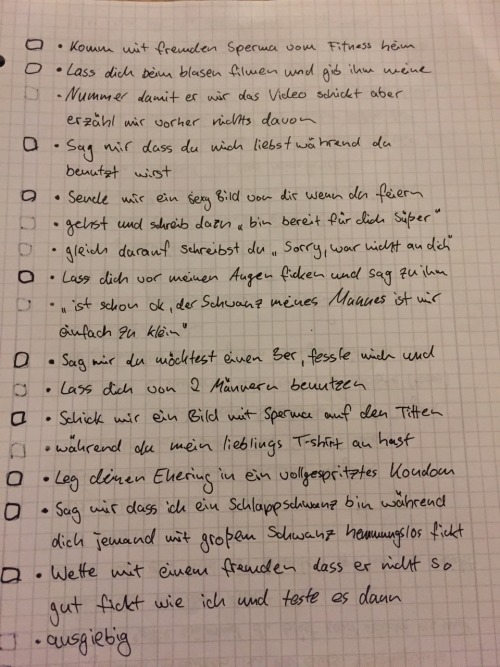 • Komm mit fremden Sperma vom Fitness heim
• Lass dich beim blasen filmen und gib ihm meine
• Nummer damit er mir das Video schickt aber
erzähl mir vorher nichts davon
• Sag mir dass du mich liebst während du
benutzt wirst
• Sende mir ein sexy Bild von dir wenn du feiern
• gehst und schreib dazu „bin bereit für dich Süßer"
• gleich darauf schreibst du „Sorry, war nicht an dich"
• Lass dich vor meinen Augen ficken und sag zu ihm
• „ist schon ok, der Schwanz meines Mannes ist mir
einfach zu klein"
• Sag mir du möchtest einen 3er, fessle mich und
• Lass dich von 2 Männern benutzen
• Schick mir ein Bild mit Sperma auf den Titten
• während du mein lieblings T-shirt an hast
• Leg deinen Ehering in ein vollgespritztes Kondom
• Sag mir dass ich ein Schlappschwanz bin während
dich jemand mit großem Schwanz hemmungslos fickt
• Wette mit einem fremden dass er nicht so
gut fickt wie ich und teste es dann
• ausgiebig